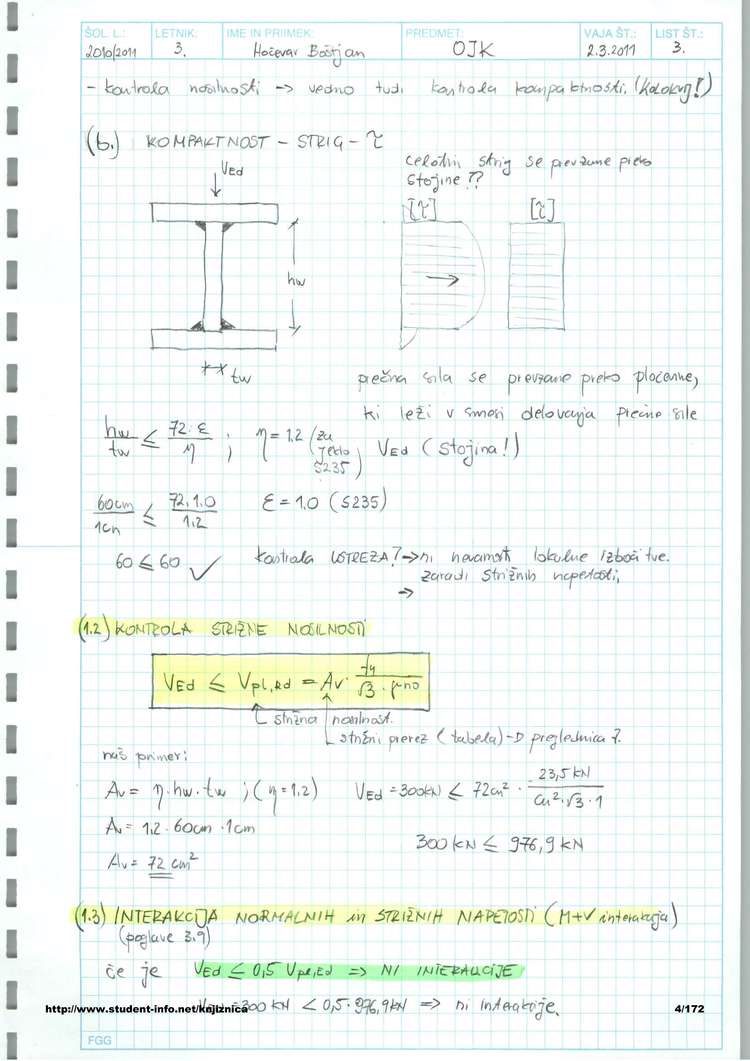 ŠOL. L.: LETNIK: IME IN PRIIMEK: PREDMET: VAJA ŠT.: LIST ŠT.:
2010/2011 3. Hočevar Boštjan OJK 2.3.2011 3.
- kontrola nosilnosti -> vedno tudi kontrola kompaktnosti. (kolokvij!)
(b.) KOMPAKTNOST - STRIG - τ
VEd
celotni strig se prevzame preko
stojine??
[τ] [τ]
hw
tw
prečna sila se prevzame preko pločevine,
ki leži v smeri delovanja prečne sile
VEd (stojina!)
hw/tw ≤ 72·ε/η ; η = 1,2 (za jeklo S235)
60cm/1cm ≤ 72·1.0/1.2 ε = 1.0 (S235)
60 ≤ 60 ✓ kontrola USTREZA! -> ni nevarnosti lokalne izbočitve
zaradi strižnih napetosti,
->
(1.2) KONTROLA STRIŽNE NOSILNOSTI
VEd ≤ Vpl,Rd = Av · fy/√3·γM0
strižna nosilnost.
strižni prerez (tabela) - D preglednica 7.
naš primer:
Av = η·hw·tw ; (η=1.2) VEd = 300kN ≤ 72cm² · 23,5 kN/cm²·√3·1
Av = 1,2·60cm·1cm
300 kN ≤ 976,9 kN
Av = 72 cm²
(1.3) INTERAKCIJA NORMALNIH in STRIŽNIH NAPETOSTI (M+V interakcija)
(poglavje 3.9)
če je VEd ≤ 0,5 Vpl,Rd => NI INTERAKCIJE
VEd = 300 kN < 0,5·976,9kN => ni interakcije.
http://www.student-info.net/knjiznica 4/172
FGG